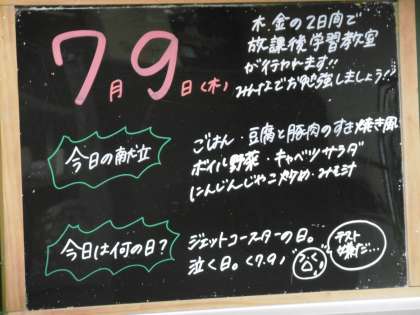 7月9日(木)
木、金の2日間で
放課後学習教室
が行われます!!
みんなでお勉強しましょう!!
今日の献立
ごはん・豆腐と豚肉のすき焼き風
ボイル野菜・キャベツサラダ
にんじんじゃこ炒め・みそ汁
今日は何の日?
ジェットコースターの日。
泣く日。(7.9)
テスト
嫌だ…